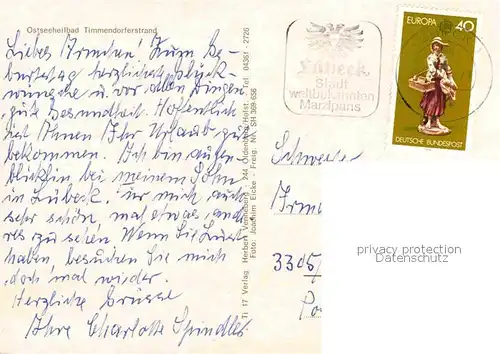 Ostseeheilbad Timmendorferstrand
Liebes Irmchen! Zum Ge-
burtstag herzliche Glück-
wünsche u. vor allen Dingen
gute Gesundheit. Hoffentlich
hat Ihnen Ihr Urlaub gut
bekommen. Ich bin augen-
blicklich bei meinem Sohn
in Lübeck, für mich auch
sehr schön, mal etwas and-
eres zu sehen. Wenn Sie Lust
haben besuchen Sie mich
doch mal wieder.
Herzliche Grüsse
Ihre Charlotte Spindler
Ti 17 Verlag Herbert Vonneberg - 244 Oldenburg/Holst. - Tel. 04361 - 2726
Foto: Joachim Eicke - Freig. Nr. SH 309-656
Lübeck
Stadt
weltbekannten
Marzipans
EUROPA 40
DEUTSCHE BUNDESPOST
Schwester
Irm
3305/
privacy protection
Datenschutz